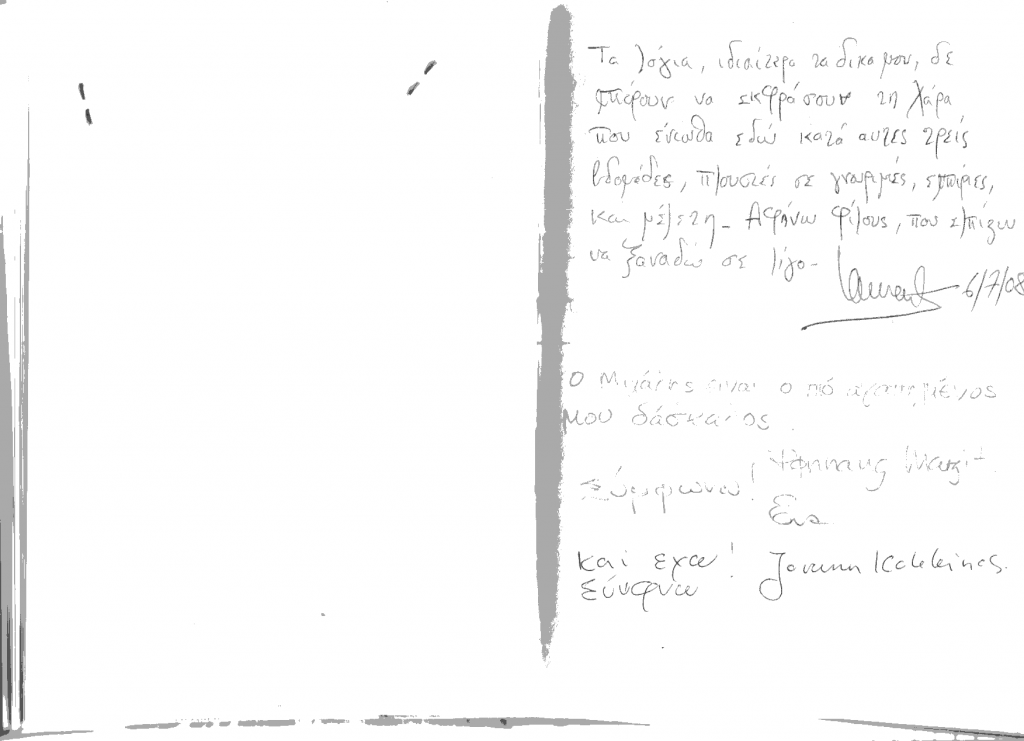 Τα λόγια, ιδιαίτερα τα δικα μου, δε
μπορουν να εκφράσουν τη χάρα
που ένιωθα εδώ κατά αυτες τρείς
βδομάδες, πλουσιές σε γνωριμιές, εμπιρίες,
και μέλετη - Αφήνω φίλους, που ελπίζω
να ξαναδώ σε λίγο -
Laurent 6/7/08
Ο Μιχάλης είναι ο πιό αγαπημένος
μου δάσκαλος.
Σύμφωνω!
Eva
και εχω!
ξύνφνω